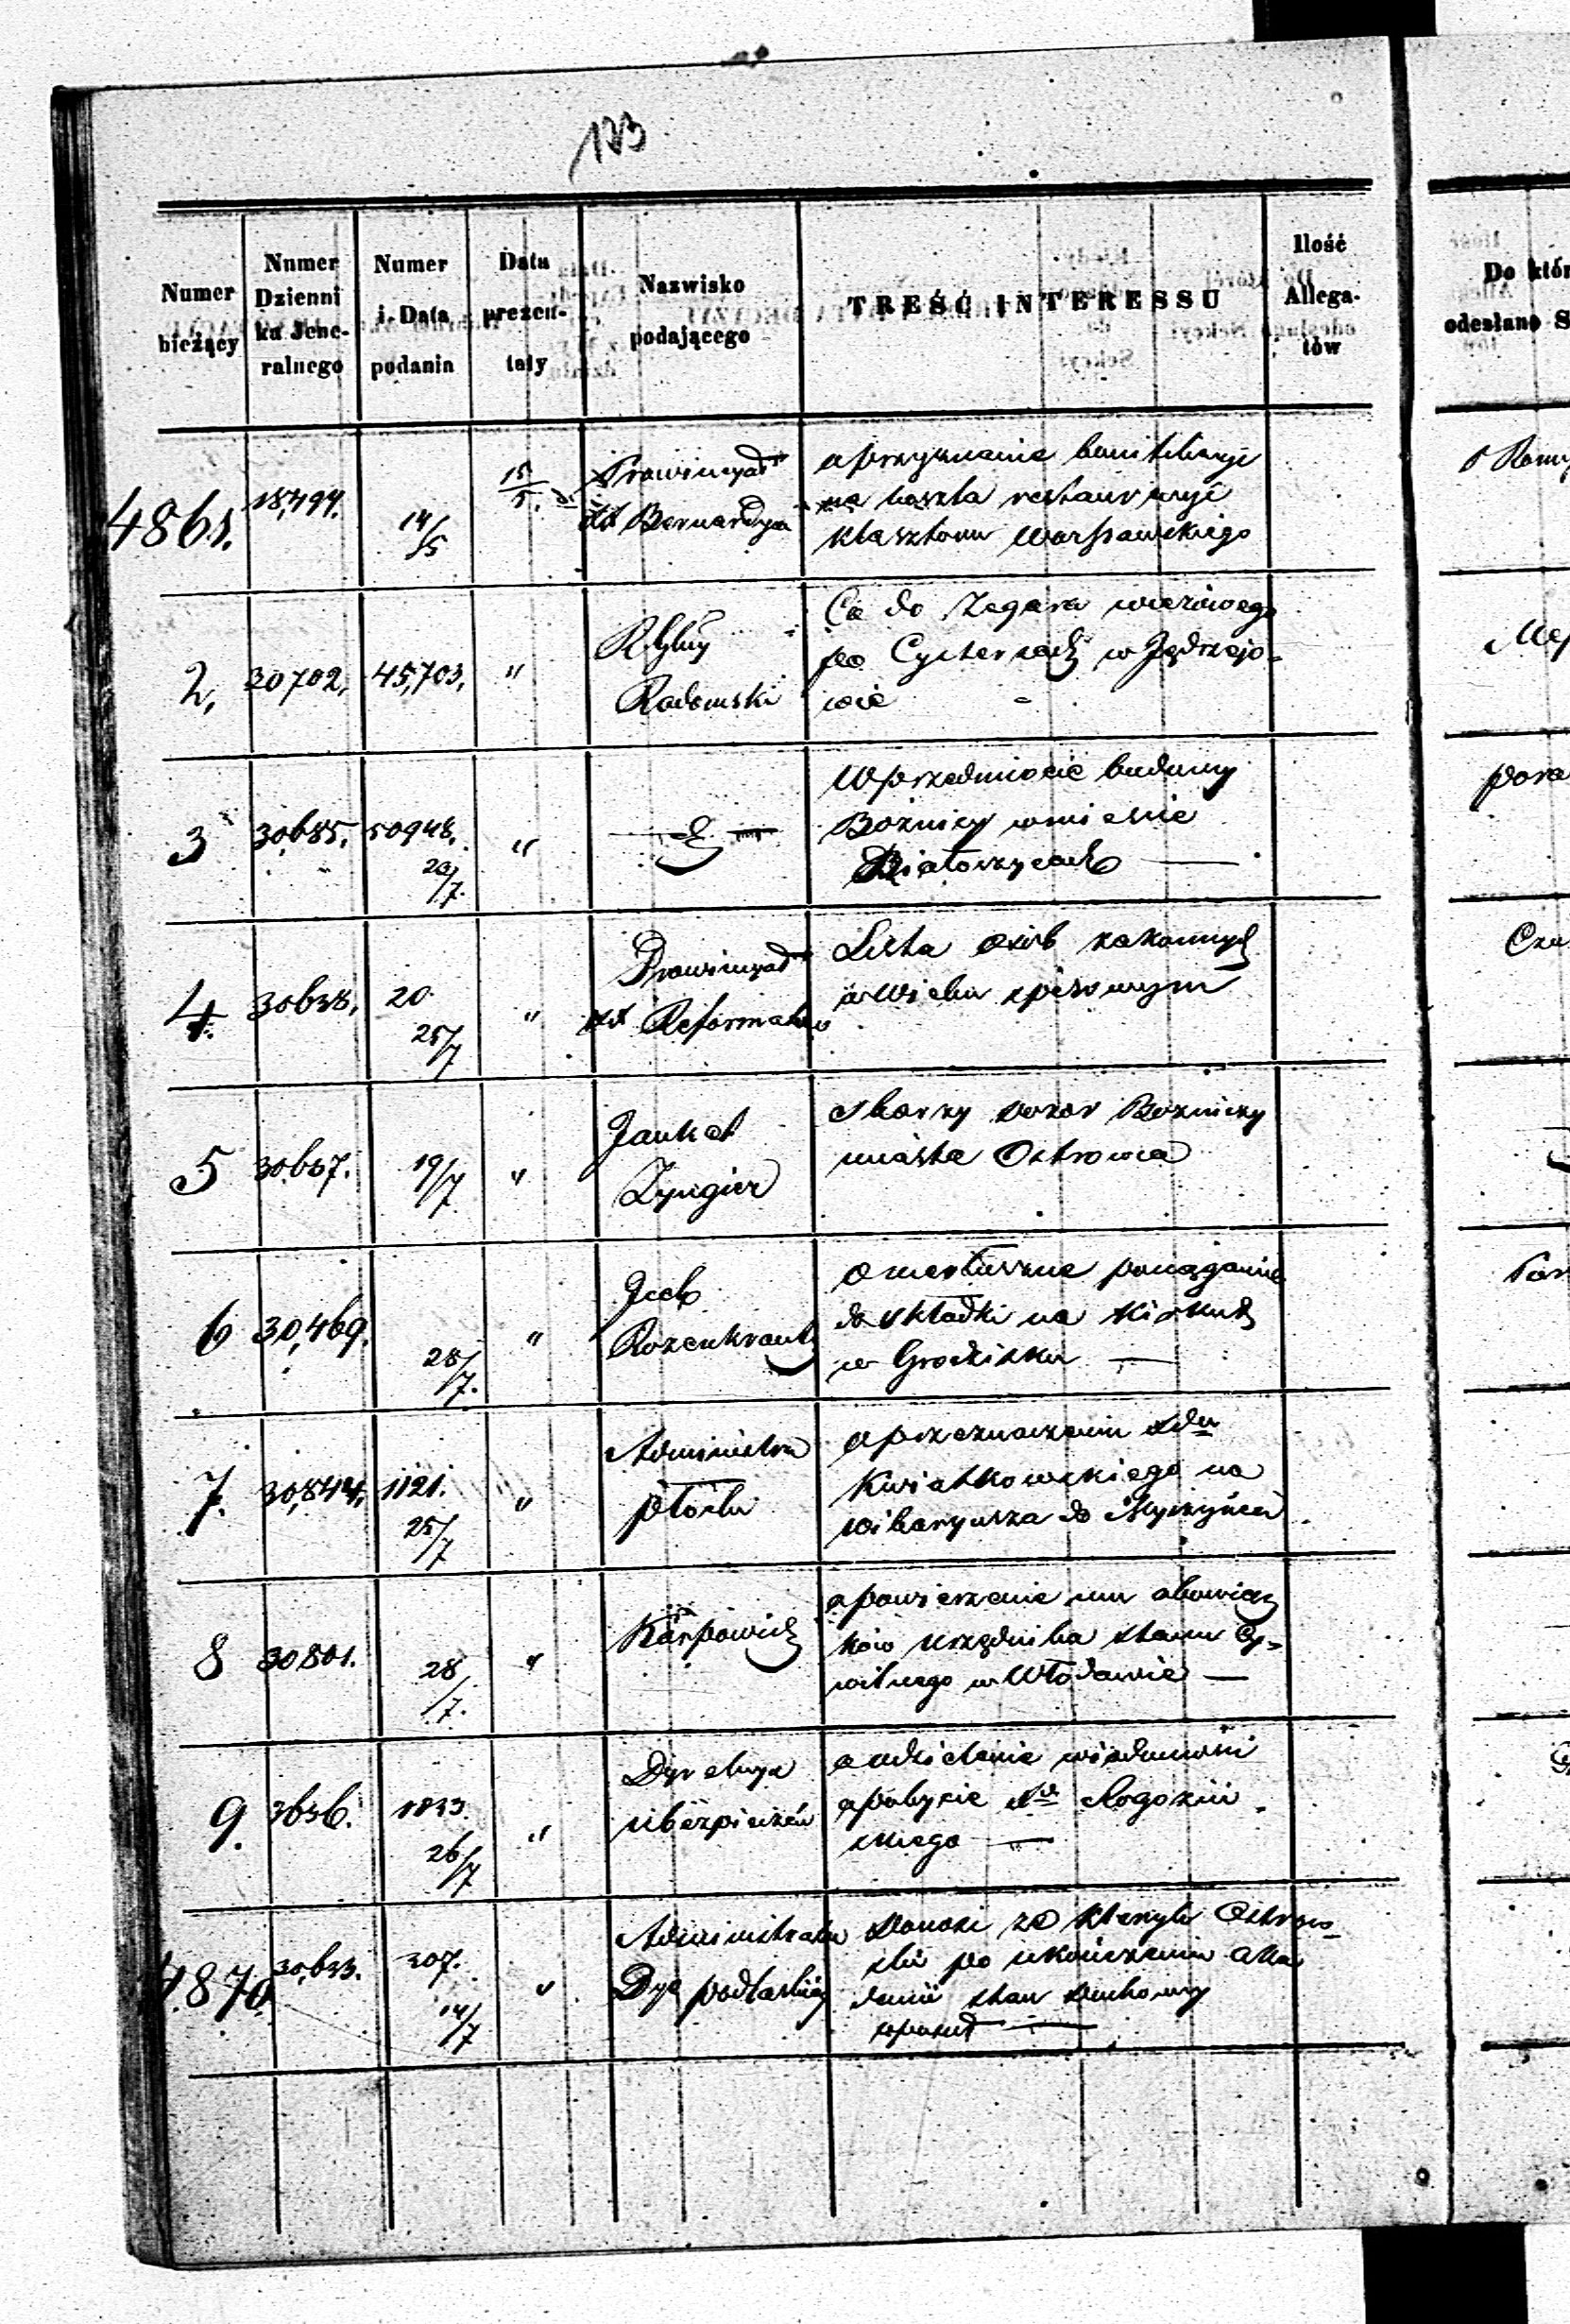 123
Numer bieżący
Numer Dziennika Jeneralnego
Numer i Data podania
Data prezentaty
Nazwisko podającego
TREŚĆ INTERESSU
Ilość Allegatów
Do któr
odesłano S
4861.
18,494.
14/5
15/5
Prowincyał
XX Bernardyn
o przyznanie
na koszta restauracyi
klasztoru Warszawskiego
2,
30702,
45,703,
"
Radomski
Co do Zegara wieżowego
po Cystersach w Jędrzejo-
wie
3
30685.
50948.
20/7.
"
W przedmiocie budowy
Bożnicy w mieście
Białobrzegach
4.
30638,
20
25/7
"
Prowincyał
XX Reformatów
Lista osób
w Wieku spisowym
5
30637.
19/7
"
Jankel
Zyngier
skarży dozór Bożniczy
miasta Ostrowca
6
30,469.
28/7.
"
Rozenkrantz
o niesłuszne pociąganie
do składki na kirkut
w Grodzisku
7.
30,844.
1121.
25/7
"
Administra
płocki
o przeznaczeniu Xdza
Kwiatkowskiego na
wikaryusza do Myszyńca
8
30801.
28/7.
"
Karpowicz
o powierzenie mu obowiąz
ków urzędnika stanu Cy-
wilnego w Włodawie
9.
3636.
1833.
26/7
"
Dyrekcya
ubezpieczeń
o udzielenie wiadomości
o pobycie Xa Rogoziń
skiego
4.870
30,633.
307.
14/7
"
Administrator
Dyc podlaskiej
Donosi że Kleryk Ostrow-
ski po ukończeniu Aka
demii stan duchowny
opuścił